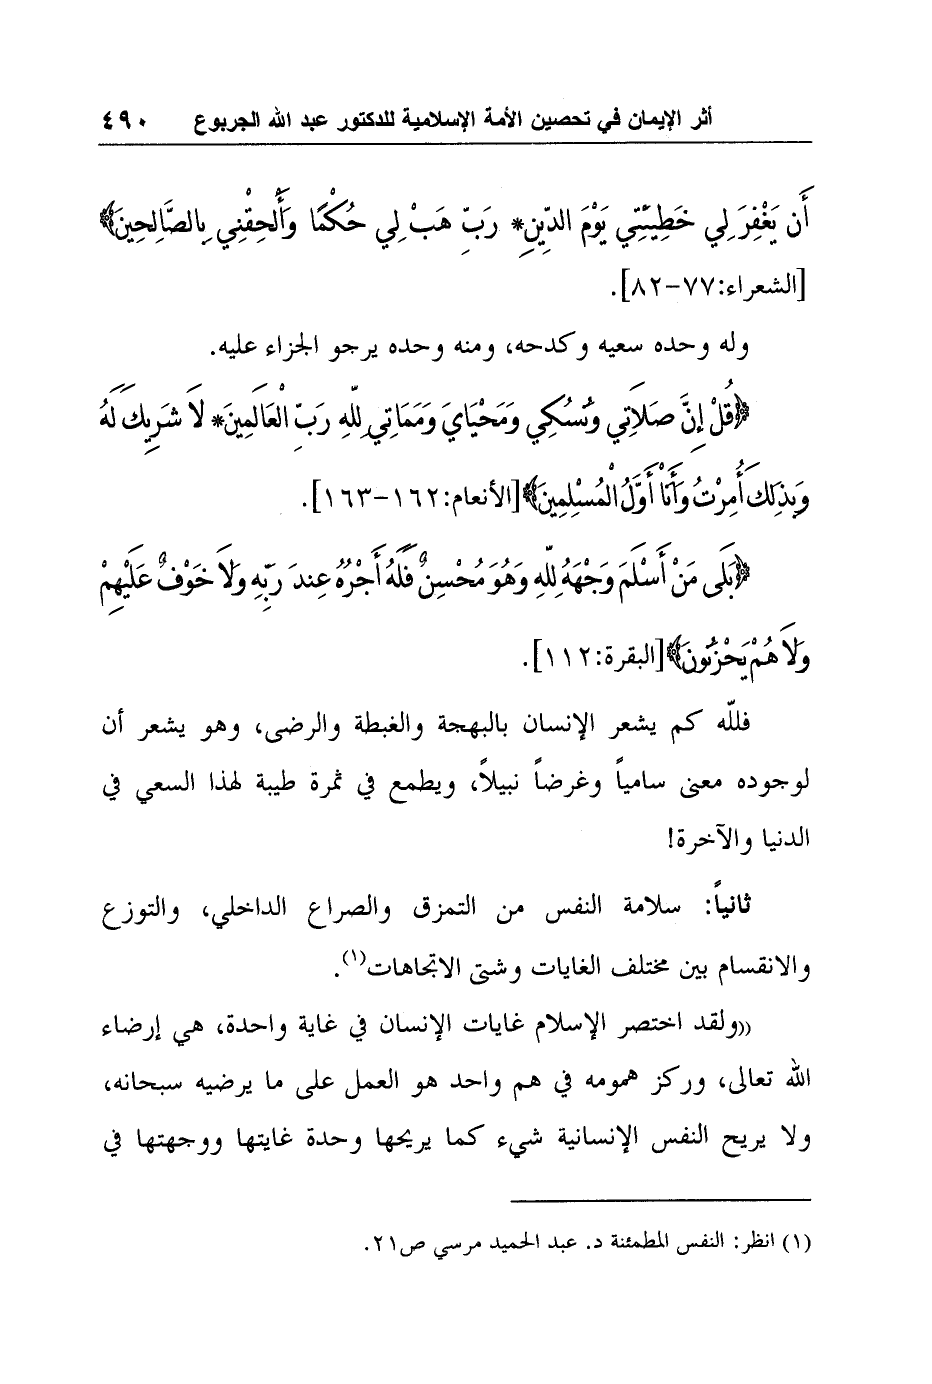 أثر الإيمان في تحصين الأمة الإسلامية للدكتور عبد الله الجربوع ٤٩٠
أَن يَغْفِرَ لِي خَطِيئَتِي يَوْمَ الدِّينِ* رَبِّ هَبْ لِي حُكْمًا وَأَلْحِقْنِي بِالصَّالِحِينَ﴾
[الشعراء:٧٧-٨٢].
وله وحده سعيه وكدحه، ومنه وحده يرجو الجزاء عليه.
﴿قُلْ إِنَّ صَلَاتِي وَنُسُكِي وَمَحْيَايَ وَمَمَاتِي لِلَّهِ رَبِّ الْعَالَمِينَ* لَا شَرِيكَ لَهُ
وَبِذَلِكَ أُمِرْتُ وَأَنَا أَوَّلُ الْمُسْلِمِينَ﴾[الأنعام:١٦٢-١٦٣].
﴿بَلَى مَنْ أَسْلَمَ وَجْهَهُ لِلَّهِ وَهُوَ مُحْسِنٌ فَلَهُ أَجْرُهُ عِندَ رَبِّهِ وَلَا خَوْفٌ عَلَيْهِمْ
وَلَا هُمْ يَحْزَنُونَ﴾[البقرة:١١٢].
فللّه كم يشعر الإنسان بالبهجة والغبطة والرضى، وهو يشعر أن
لوجوده معنى سامياً وغرضاً نبيلاً، ويطمع في ثمرة طيبة لهذا السعي في
الدنيا والآخرة!
ثانياً: سلامة النفس من التمزق والصراع الداخلي، والتوزع
والانقسام بين مختلف الغايات وشتى الاتجاهات(١).
((ولقد اختصر الإسلام غايات الإنسان في غاية واحدة، هي إرضاء
الله تعالى، وركز همومه في هم واحد هو العمل على ما يرضيه سبحانه،
ولا يريح النفس الإنسانية شيء كما يريحها وحدة غايتها ووجهتها في
(١) انظر: النفس المطمئنة د. عبد الحميد مرسي ص٢١.